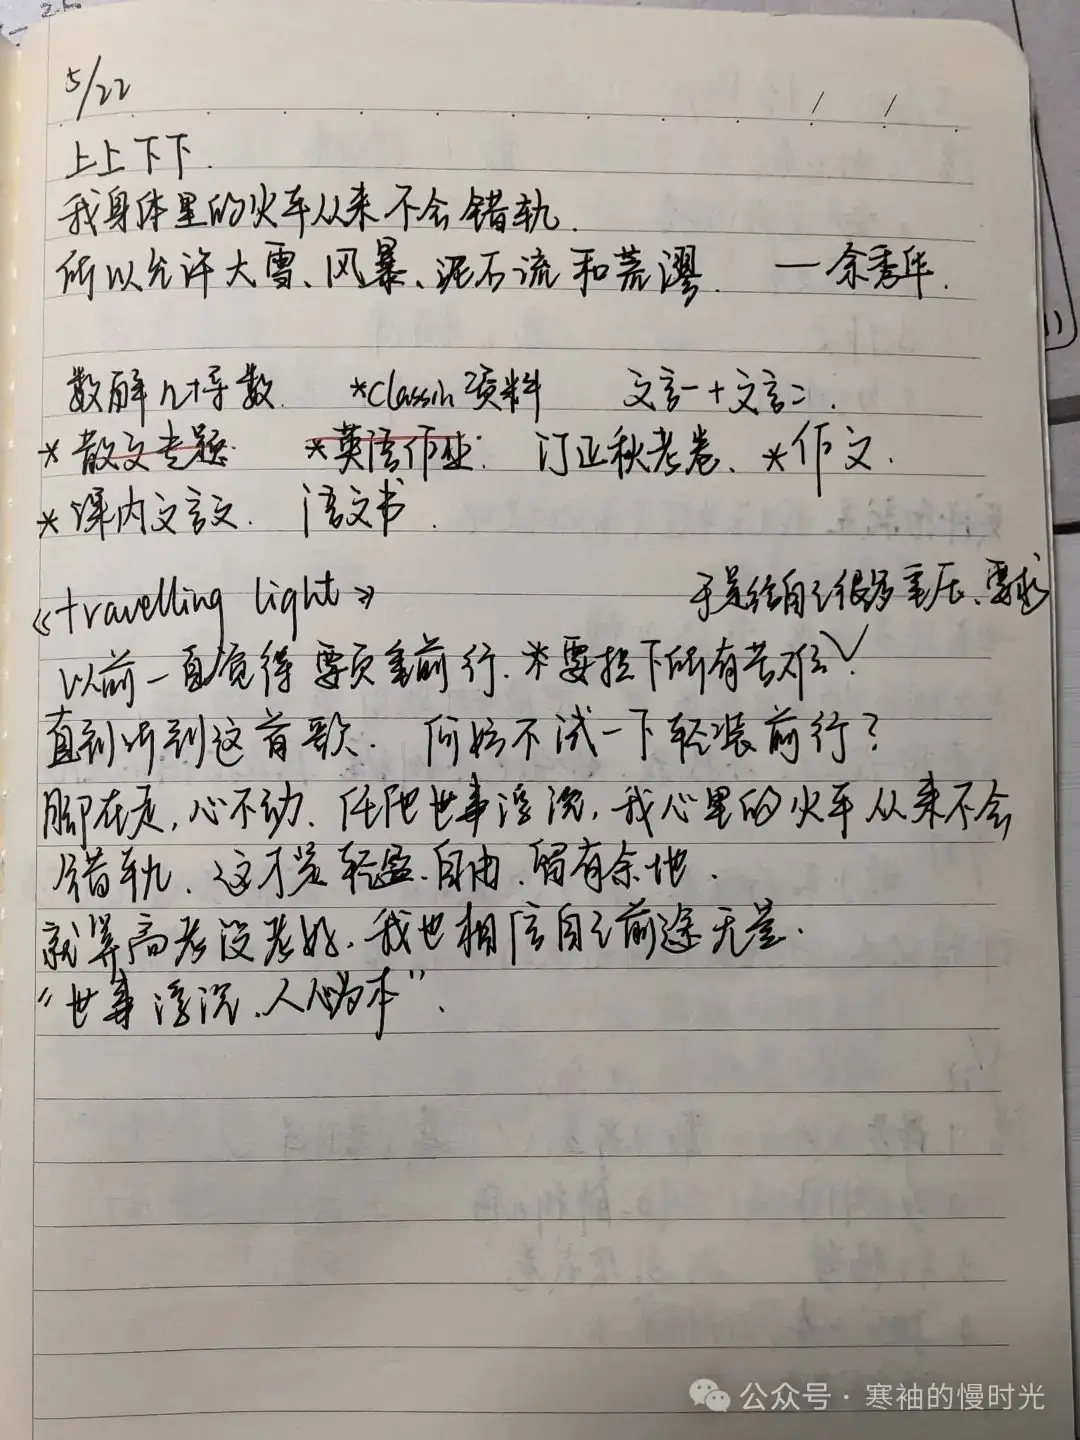 5/22
上上下下.
我身体里的火车从来不会错轨.
所以允许大雪、风暴、泥石流和荒谬. —余秀华.
数解几+导数. *classin资料 文言一+文言二.
*散文专题. *英语作业: 订正秋考卷、*作文.
*课内文言文. 语文书.
《travelling light》 于是给自己很多重压、要求
以前一直觉得要负重前行.*要担下所有苦难
直到听到这首歌. 何妨不试一下轻装前行?
脚在走,心不动. 任他世事浮沉,我心里的火车从来不会
错轨. 这才是轻盈.自由.留有余地.
就算高考没考好.我也相信自己前途无量.
“世事浮沉.人心为本”.
公众号·寒袖的慢时光